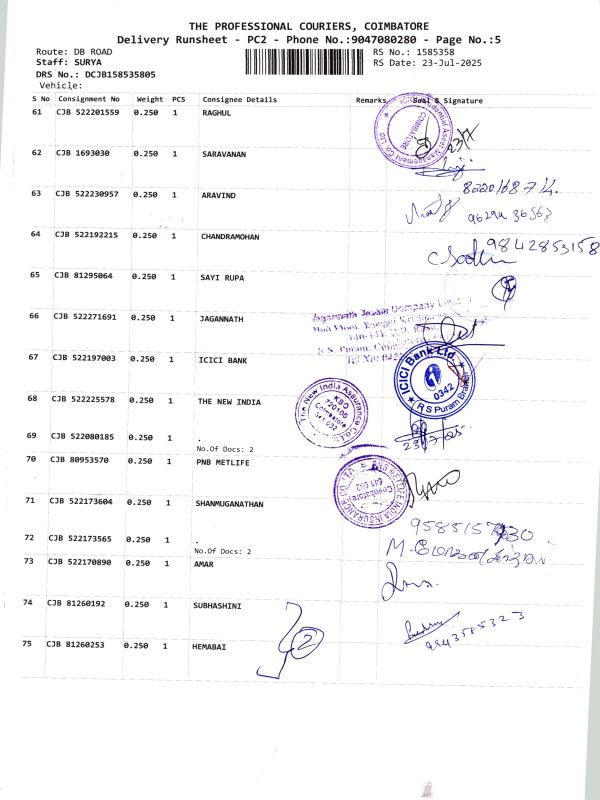 THE PROFESSIONAL COURIERS, COIMBATORE
Delivery Runsheet - PC2 - Phone No.:9047080280 - Page No.:5
Route: DB ROAD RS No.: 1585358
Staff: SURYA RS Date: 23-Jul-2025
DRS No.: DCJB158535805
Vehicle:
S No Consignment No Weight PCS Consignee Details Remarks Seal & Signature
61 CJB 522201559 0.250 1 RAGHUL
COIMBATORE
23/7
62 CJB 1693030 0.250 1 SARAVANAN
63 CJB 522230957 0.250 1 ARAVIND
64 CJB 522192215 0.250 1 CHANDRAMOHAN 9842853158
65 CJB 81295064 0.250 1 SAYI RUPA
66 CJB 522271691 0.250 1 JAGANNATH
67 CJB 522197003 0.250 1 ICICI BANK
ICICI Bank Ltd.
0342
R S Puram Branch
68 CJB 522225578 0.250 1 THE NEW INDIA
The New India Assurance Co. Ltd
KBO
720100
Coimbatore
69 CJB 522080185 0.250 1 .
23/7/25
No.Of Docs: 2
70 CJB 80953570 0.250 1 PNB METLIFE
PNB METLIFE INDIA INSURANCE CO. LTD
Coimbatore
71 CJB 522173604 0.250 1 SHANMUGANATHAN
72 CJB 522173565 0.250 1 .
No.Of Docs: 2
73 CJB 522170890 0.250 1 AMAR
74 CJB 81260192 0.250 1 SUBHASHINI
2
9843585323
75 CJB 81260253 0.250 1 HEMABAI